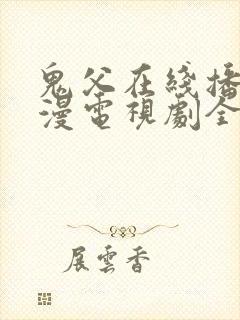 鬼父在綫播
漫電視劇全
展雲香